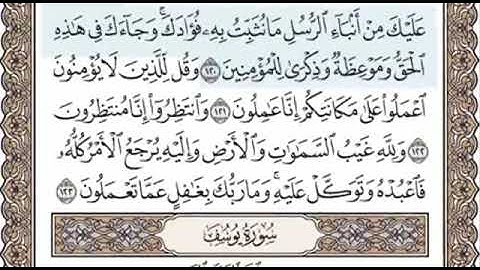 عَلَيْكَ مِنْ أَنۢبَآءِ ٱلرُّسُلِ مَا نُثَبِّتُ بِهِۦ فُؤَادَكَۚ وَجَآءَكَ فِى هَٰذِهِ
ٱلْحَقُّ وَمَوْعِظَةٌ وَذِكْرَىٰ لِلْمُؤْمِنِينَ ١٢٠ وَقُل لِّلَّذِينَ لَا يُؤْمِنُونَ
ٱعْمَلُوا۟ عَلَىٰ مَكَانَتِكُمْ إِنَّا عَٰمِلُونَ ١٢١ وَٱنتَظِرُوٓا۟ إِنَّا مُنتَظِرُونَ
١٢٢ وَلِلَّهِ غَيْبُ ٱلسَّمَٰوَٰتِ وَٱلْأَرْضِ وَإِلَيْهِ يُرْجَعُ ٱلْأَمْرُ كُلُّهُۥ
فَٱعْبُدْهُ وَتَوَكَّلْ عَلَيْهِۚ وَمَا رَبُّكَ بِغَٰفِلٍ عَمَّا تَعْمَلُونَ ١٢٣
سُورَةُ يُوسُفَ